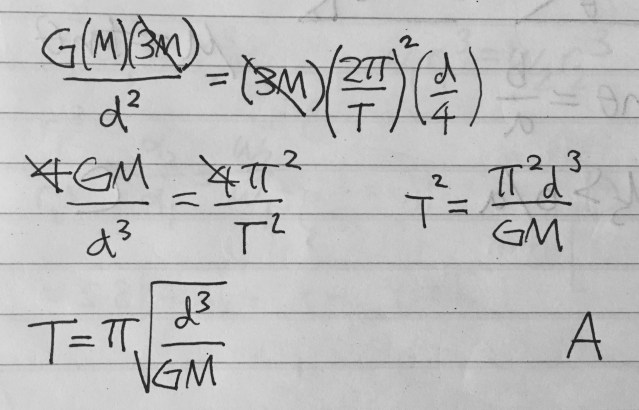 G(M)(3M)/d² = (3M)(2π/T)²(d/4)
4GM/d³ = 4π²/T² T² = π²d³/GM
T = π√(d³/GM) A